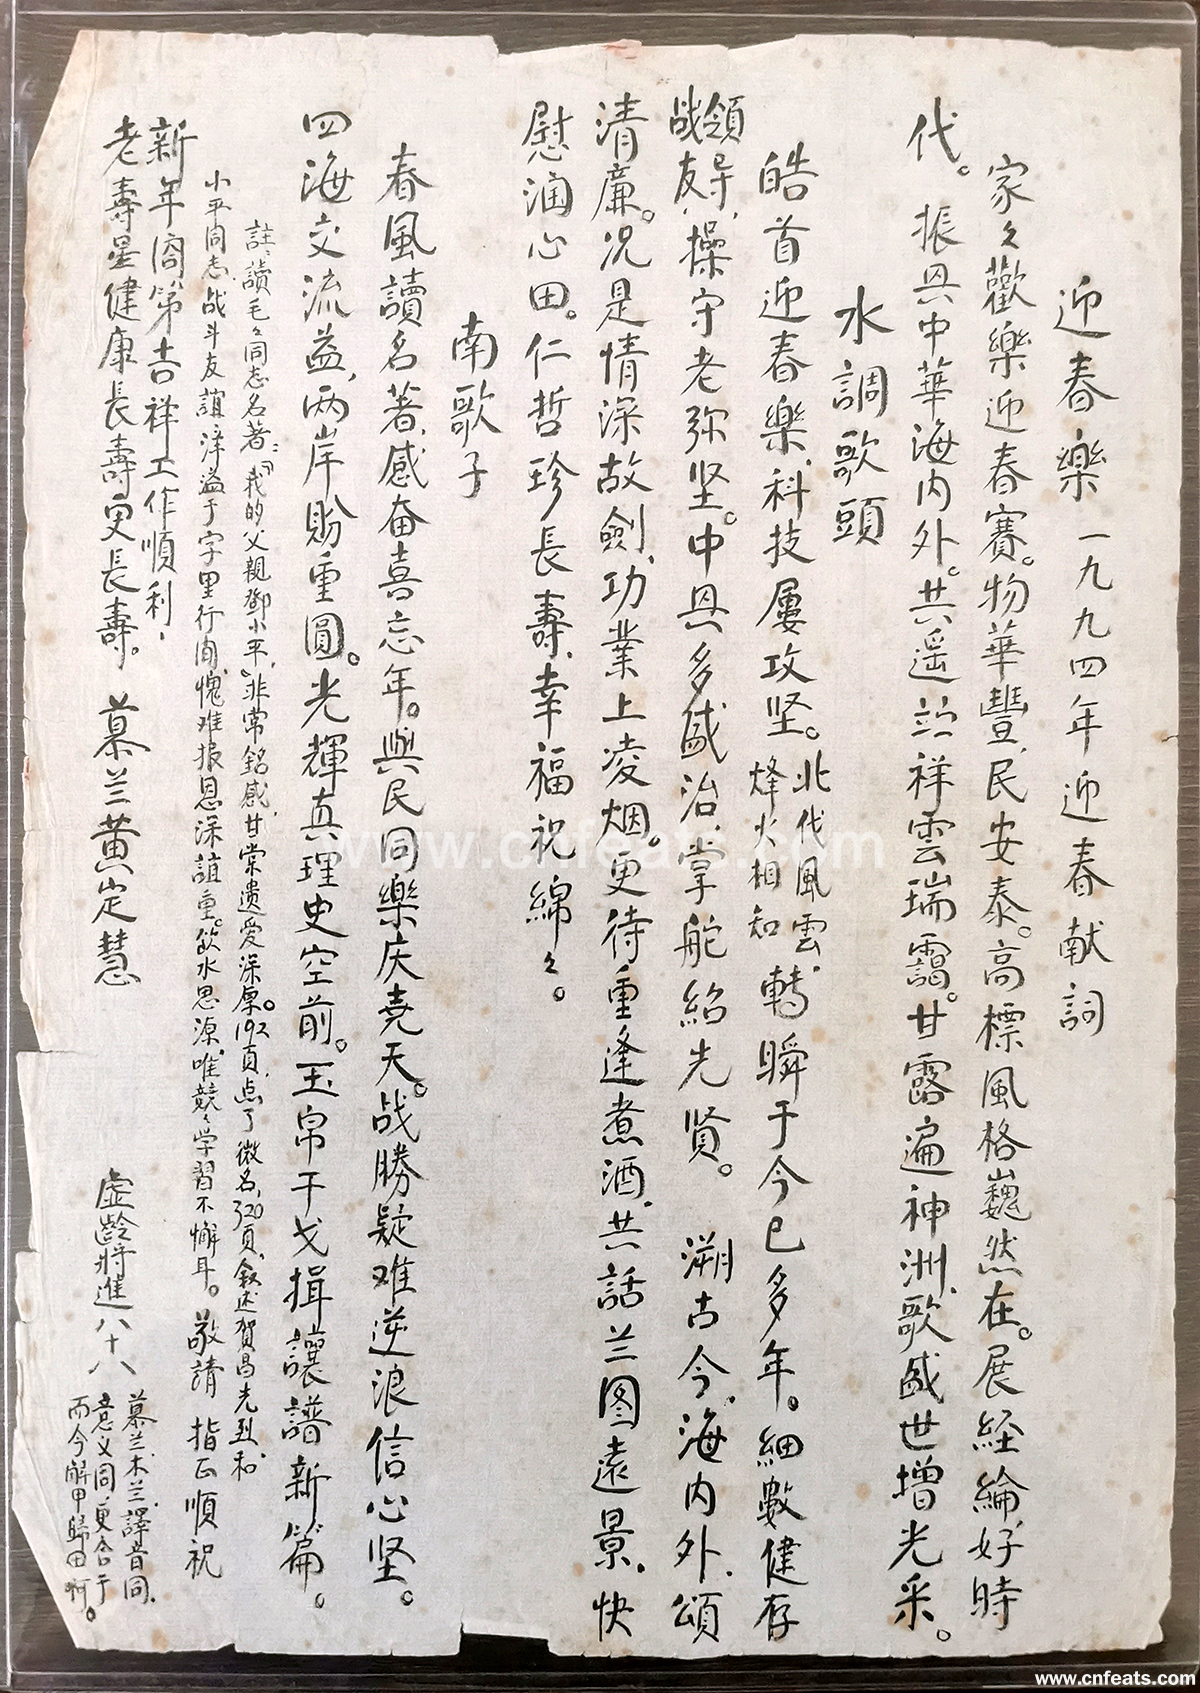 迎春樂 一九九四年迎春献詞
家々歡樂迎春賽。物華豐,民安泰。高標風格巍然在。展経綸,好時
代。振興中華海内外。共遥瞻祥雲瑞靄。甘露遍神洲,歌盛世增光采。
水調歌頭
皓首迎春樂,科技屢攻坚。北伐風雲,烽火相知,轉瞬于今已多年。細數健存
領导,战友,操守老弥坚。中興多盛治,掌舵紹先賢。 溯古今,海内外,頌
清廉。况是情深故劍,功業上凌烟。更待重逢煮酒,共話兰图遠景,快
慰涵心田。仁哲珍長壽,幸福祝綿々。
南歌子
春風讀名著,感奋喜忘年。與民同樂庆尭天。战勝疑难逆浪信心坚。
四海交流益,两岸盼重圓。光輝真理史空前。玉帛干戈揖讓譜新篇。
註:讀毛々同志名著:“我的父親鄧小平”,非常銘感,甘棠遗爱深厚。192頁,点了微名,320頁,叙述賀昌先烈和
小平同志,战斗友誼,洋溢于字里行间,愧难报恩深誼重。飲水思源,唯兢々学習不懈耳。敬請 指正順祝
新年阖第吉祥工作順利,
老壽星健康長壽更長壽。 慕兰黄定慧
虚龄将進八十八
慕兰,木兰,譯音同,
意义同,更合于
而今解甲歸田啊。
www.cnfeats.com
www.cnfeats.com